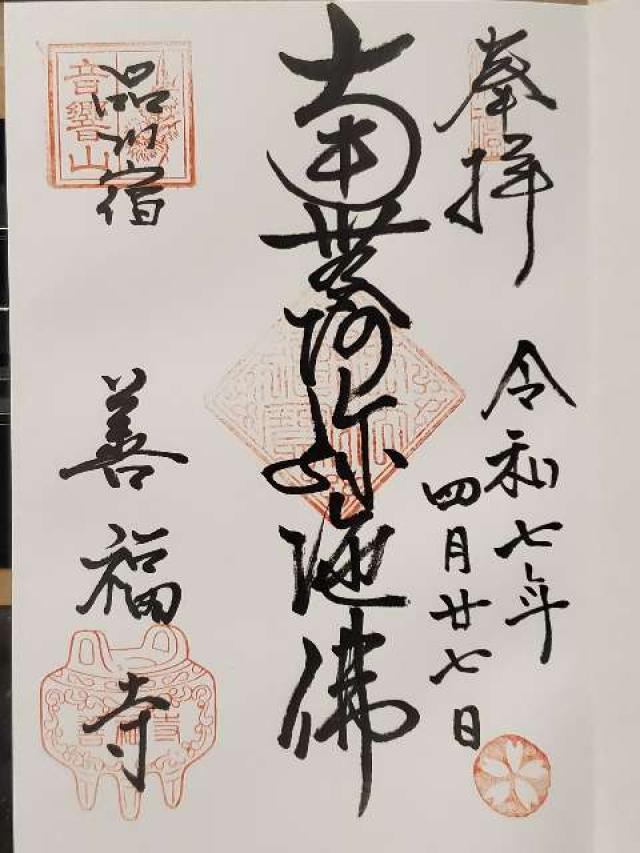 奉拝
令和七年
四月廿七日
南無阿弥陀佛
品川宿
音響山
善福寺